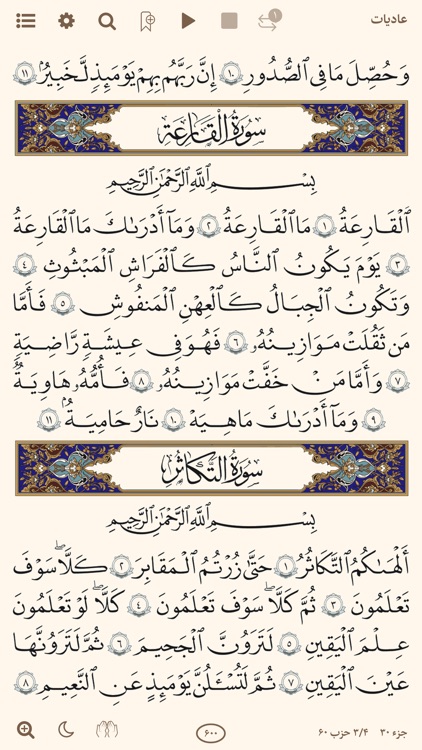 ۱
عادیات
وَحُصِّلَ مَا فِي ٱلصُّدُورِ ۝١٠ إِنَّ رَبَّهُم بِهِمْ يَوْمَئِذٍ لَّخَبِيرٌۢ ۝١١
سُورَةُ ٱلْقَارِعَةِ
بِسْمِ ٱللَّهِ ٱلرَّحْمَٰنِ ٱلرَّحِيمِ
ٱلْقَارِعَةُ ۝١ مَا ٱلْقَارِعَةُ ۝٢ وَمَآ أَدْرَىٰكَ مَا ٱلْقَارِعَةُ
۝٣ يَوْمَ يَكُونُ ٱلنَّاسُ كَٱلْفَرَاشِ ٱلْمَبْثُوثِ ۝٤
وَتَكُونُ ٱلْجِبَالُ كَٱلْعِهْنِ ٱلْمَنفُوشِ ۝٥ فَأَمَّا
مَن ثَقُلَتْ مَوَٰزِينُهُۥ ۝٦ فَهُوَ فِي عِيشَةٍ رَّاضِيَةٍ
۝٧ وَأَمَّا مَنْ خَفَّتْ مَوَٰزِينُهُۥ ۝٨ فَأُمُّهُۥ هَاوِيَةٌ
۝٩ وَمَآ أَدْرَىٰكَ مَا هِيَهْ ۝١٠ نَارٌ حَامِيَةٌۢ ۝١١
سُورَةُ ٱلتَّكَاثُرِ
بِسْمِ ٱللَّهِ ٱلرَّحْمَٰنِ ٱلرَّحِيمِ
أَلْهَىٰكُمُ ٱلتَّكَاثُرُ ۝١ حَتَّىٰ زُرْتُمُ ٱلْمَقَابِرَ ۝٢ كَلَّا سَوْفَ
تَعْلَمُونَ ۝٣ ثُمَّ كَلَّا سَوْفَ تَعْلَمُونَ ۝٤ كَلَّا لَوْ تَعْلَمُونَ
عِلْمَ ٱلْيَقِينِ ۝٥ لَتَرَوُنَّ ٱلْجَحِيمَ ۝٦ ثُمَّ لَتَرَوُنَّهَا
عَيْنَ ٱلْيَقِينِ ۝٧ ثُمَّ لَتُسْـَٔلُنَّ يَوْمَئِذٍ عَنِ ٱلنَّعِيمِ ۝٨
جزء ۳۰ ۳/۴ حزب ۶۰
۶۰۰